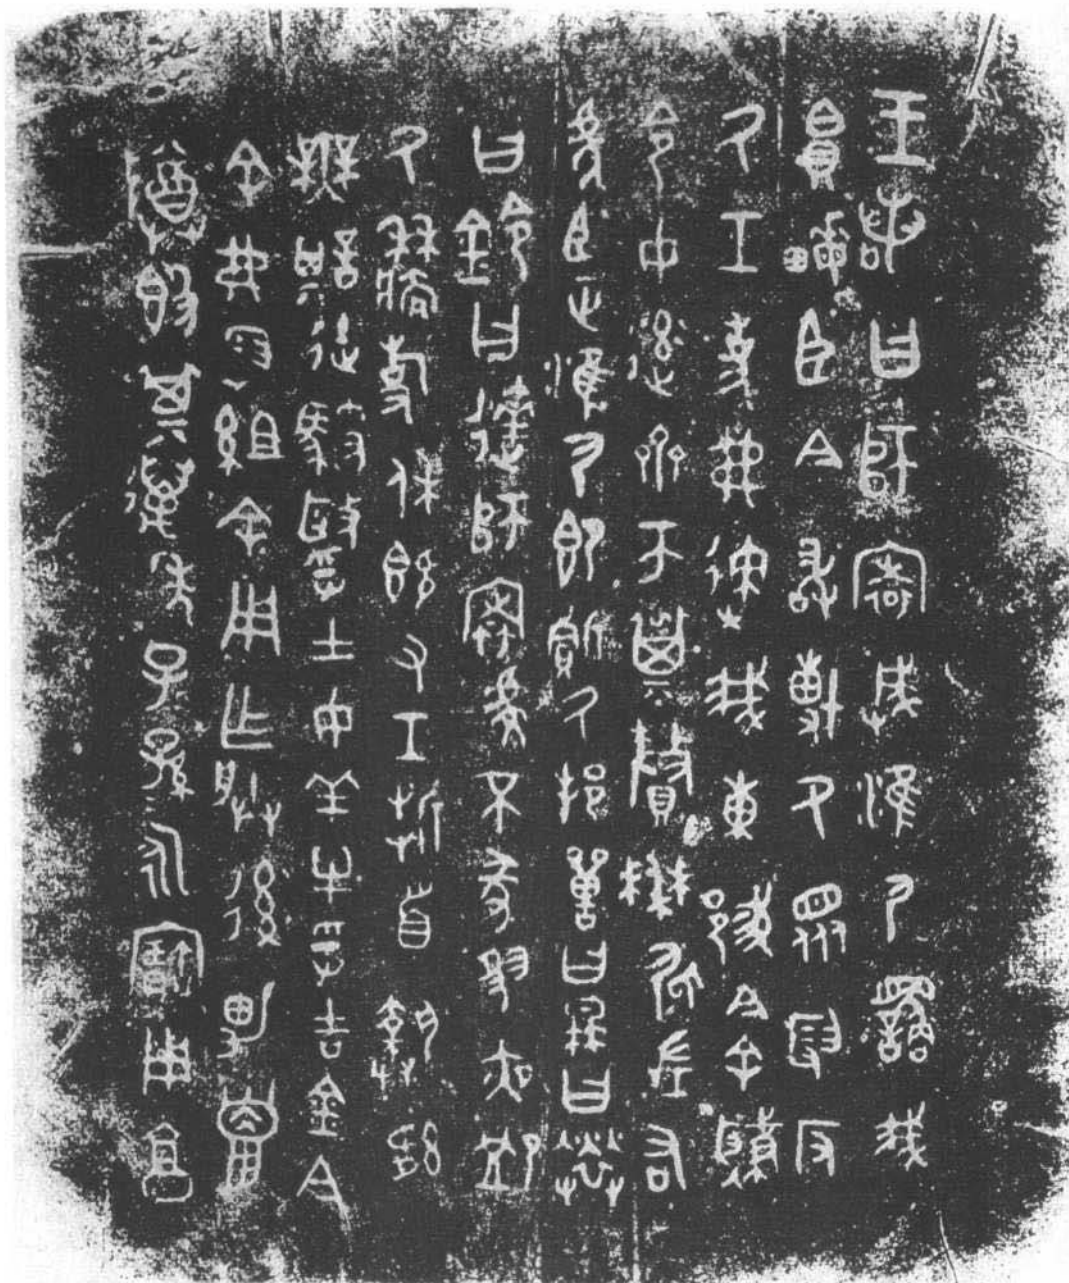 王若曰師㝨𢦏淮尸繇我
帛畮臣今敢博厥眾叚反
厥工吏弗速我東䧕今余肇
令女率齊帀㠱𠩵僰𡰥左右
虎臣正淮尸即𧶠厥邦嘼曰冉曰𦮙
曰鈴曰達師㝨虔不㒸夙夜卹
厥牆事休既又工折首執訊
無諆徒馭毆孚士女羊牛孚吉金今
余弗叚組余用乍朕後男巤
尊𣪘其萬年子孫永寶用亯